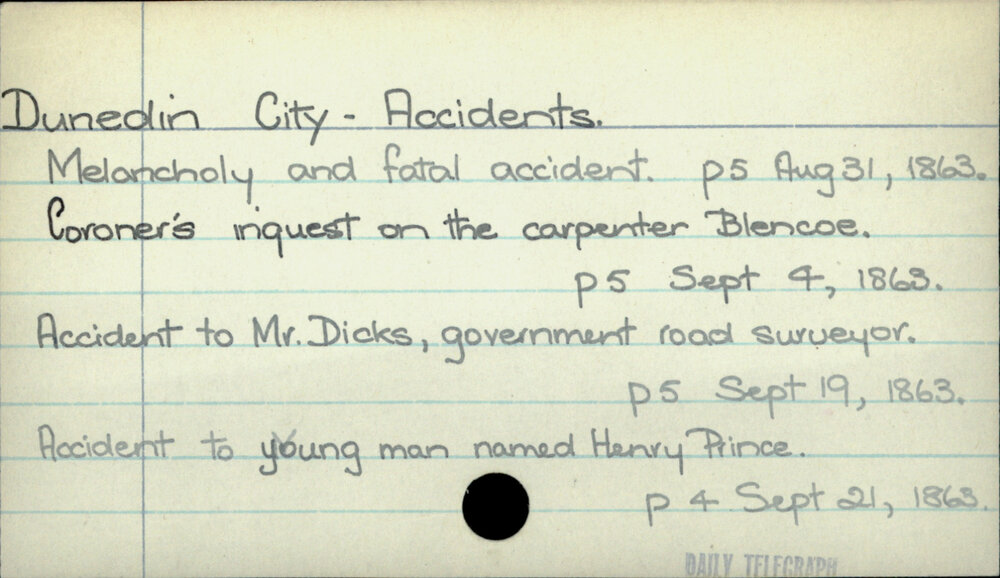 Dunedin City - Accidents.
Melancholy and fatal accident. p5 Aug 31, 1863.
Coroner's inquest on the carpenter Blencoe.
p5 Sept 4, 1863.
Accident to Mr. Dicks, government road surveyor.
p5 Sept 19, 1863.
Accident to young man named Henry Prince.
p 4 Sept 21, 1863.
DAILY TELEGRAPH